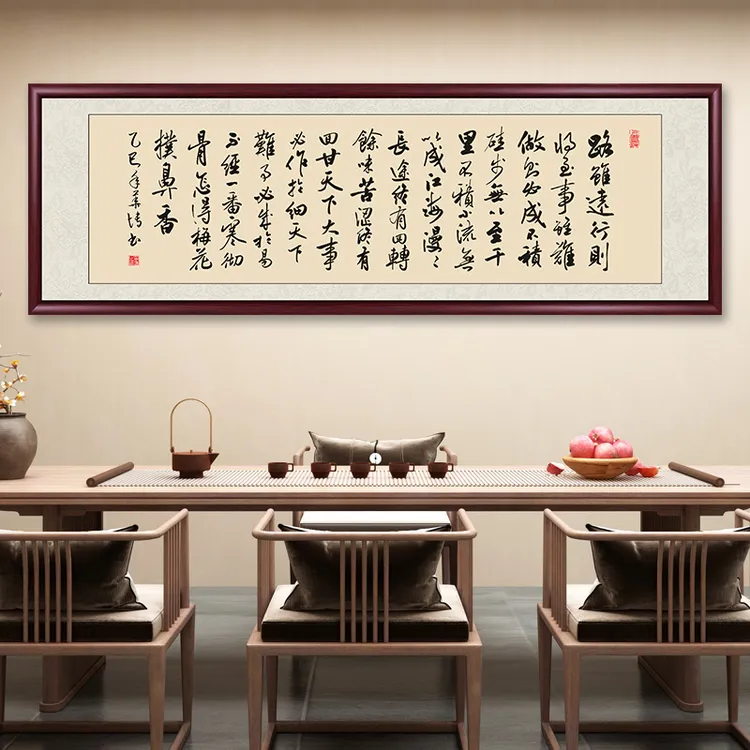 路雖遠行則
將至事雖難
做則必成不積
跬步無以至千
里不積小流無
以成江海漫々
長途終有回轉
餘味苦澀終有
回甘天下大事
必作於細天下
難事必成於易
不經一番寒徹
骨怎得梅花
撲鼻香
乙巳年 書